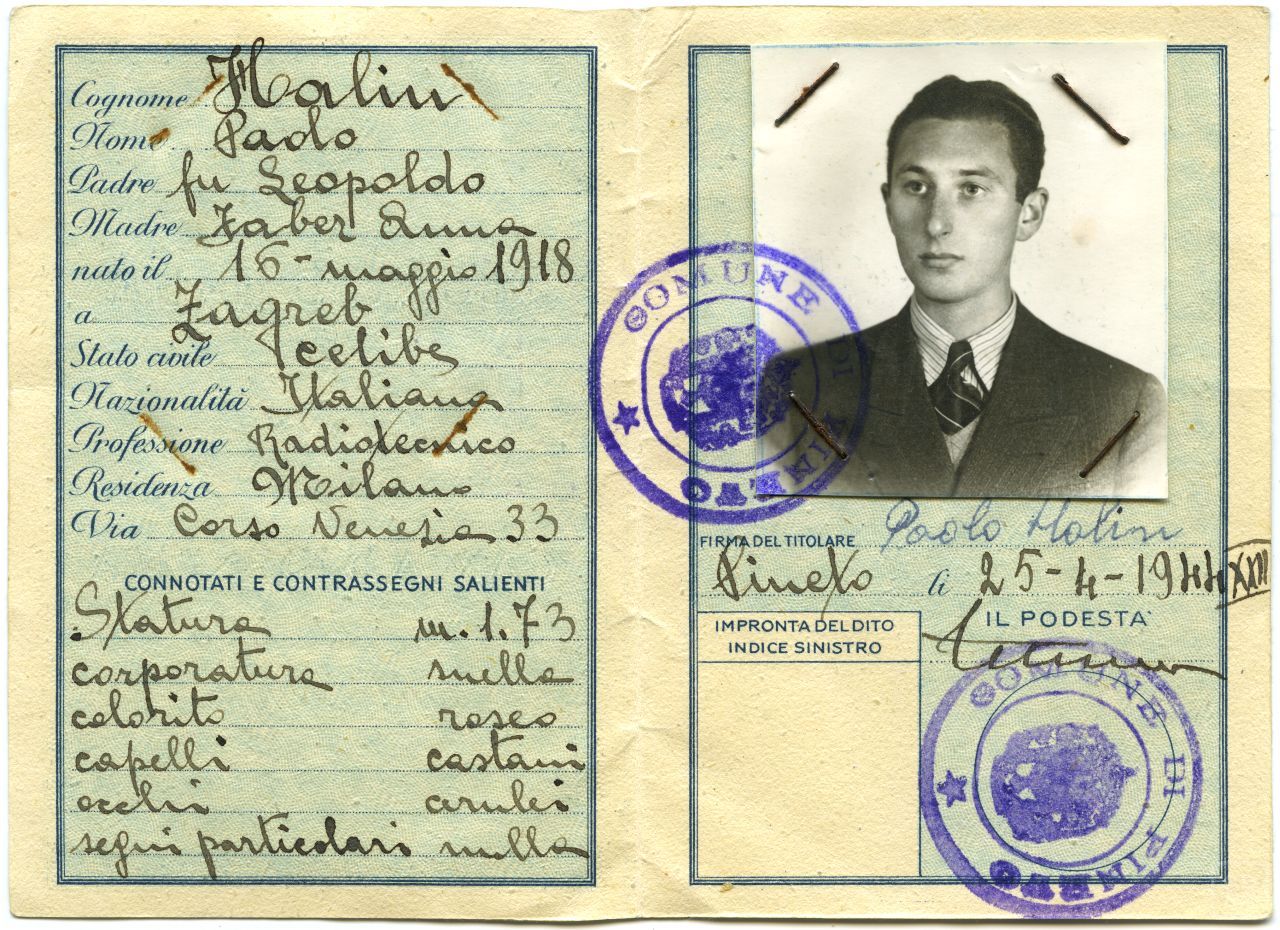 Cognome Halin
Nome Paolo
Padre fu Leopoldo
Madre Zaber Anna
nato il 16 - maggio 1918
a Zagreb
Stato civile celibe
Nazionalità Italiana
Professione Radiotecnico
Residenza Milano
Via Corso Venezia 33
CONNOTATI E CONTRASSEGNI SALIENTI
Statura m. 1.73
corporatura snella
colorito roseo
capelli castani
occhi cerulei
segni particolari nulla
COMUNE DI PINETO
FIRMA DEL TITOLARE Paolo Halin
Pineto li 25-4-1944 XXII
IL PODESTÀ
IMPRONTA DEL DITO
INDICE SINISTRO
COMUNE DI PINETO